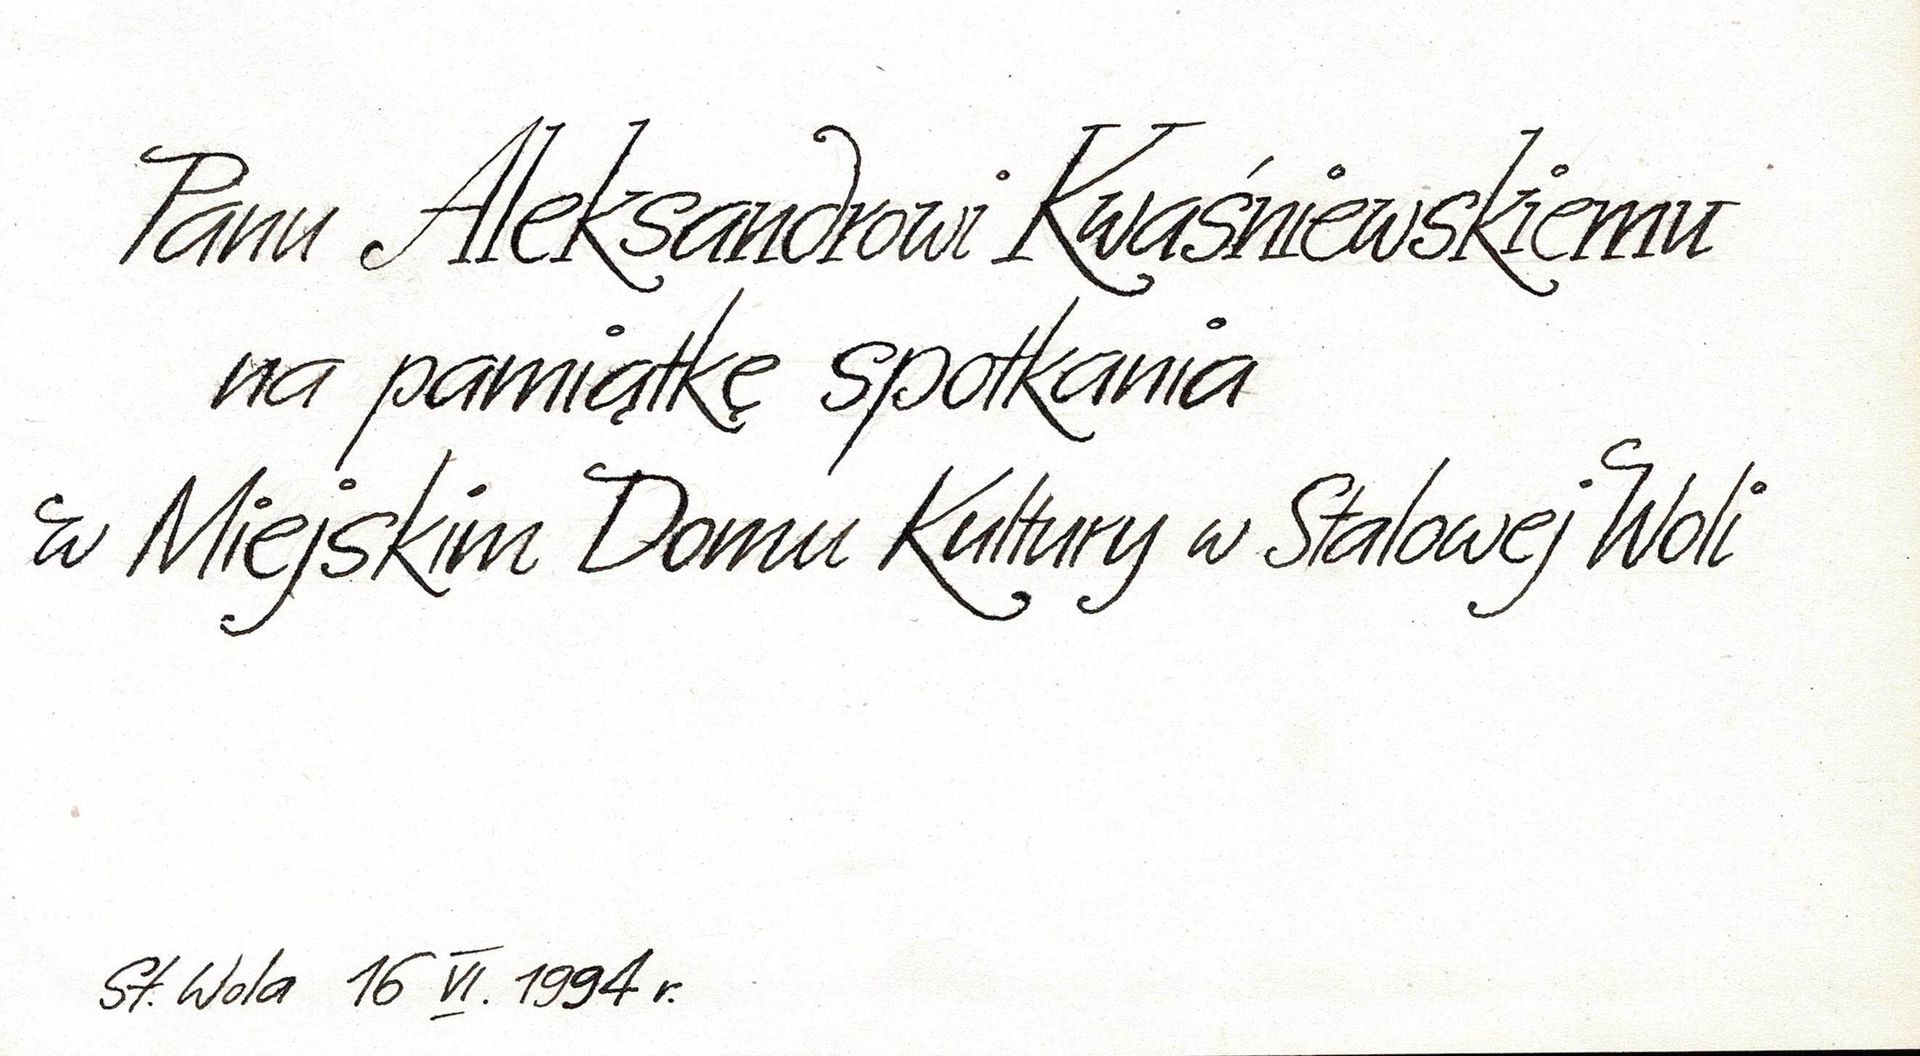 Panu Aleksandrowi Kwaśniewskiemu
na pamiątkę spotkania
w Miejskim Domu Kultury w Stalowej Woli
St. Wola 16 VI. 1994 r.